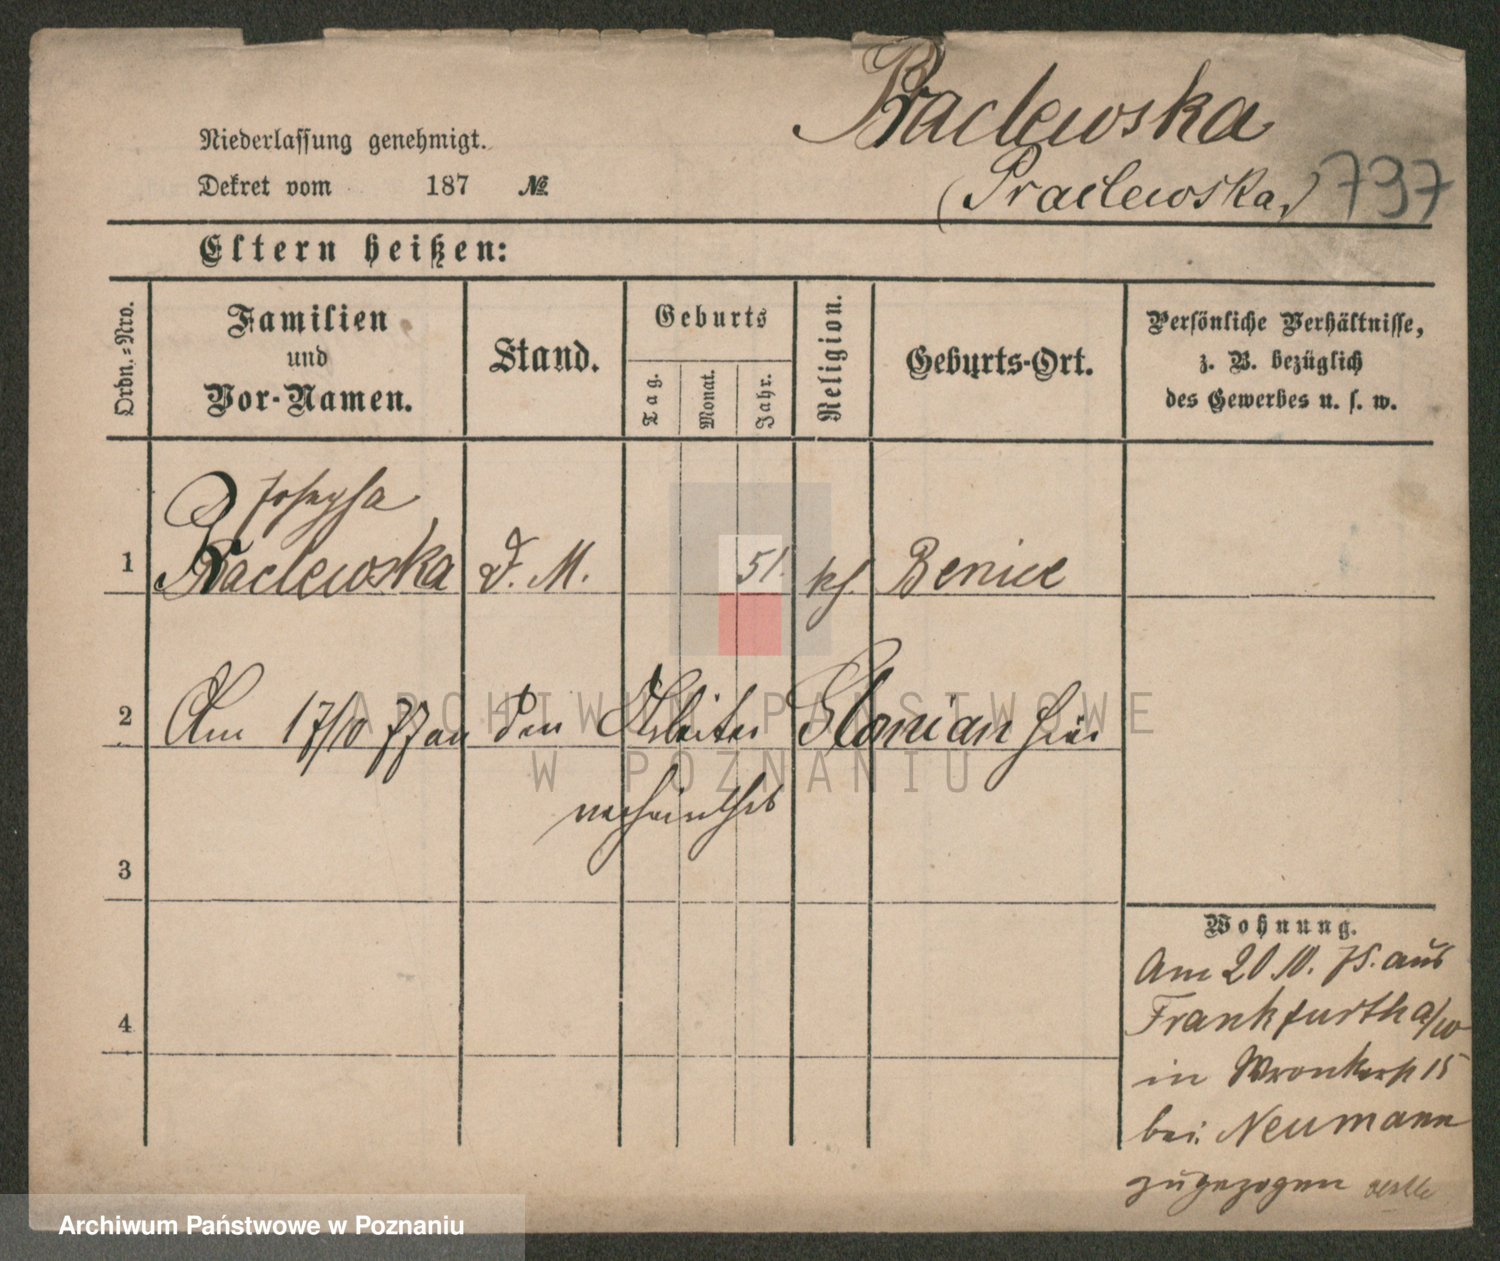 Praclewska
Niederlassung genehmigt.
Dekret vom 187 №
(Praclewska) 737
Eltern heißen:
Ordn.=Nro.
Familien
und
Vor-Namen.
Stand.
Geburts
Tag.
Monat.
Jahr.
Religion.
Geburts-Ort.
Persönliche Verhältnisse,
z. B. bezüglich
des Gewerbes u. s. w.
Josepha
1 Praclewska d. M. 51. kh. Benice
2 Am 17/10 77 an den Arbeiter hier
verheirathet
3
4
Wohnung.
Am 20 10. 75. aus
Frankfurth a/w
in Wronkerst 15
bei Neumann
zugezogen
ARCHIWUM PAŃSTWOWE
W POZNANIU
Archiwum Państwowe w Poznaniu